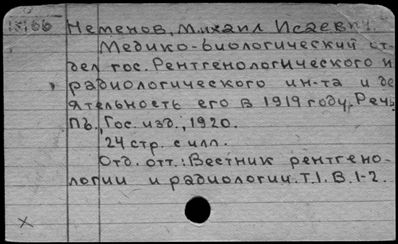 Неменов, Михаил Исаевич.
Медико-биологический от-
дел гос. Рентгенологического и
радиологического ин-та и де
ятельность его в 1919 году, Речь
Пъ., Гос. изд., 1920.
24 стр. с илл.
Отд. отт.: Вестник рентгено-
логии и радиологии. Т.1. В.1-2.